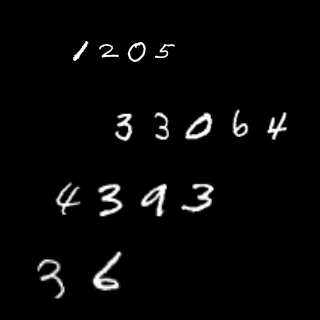 1205
33064
4393
36